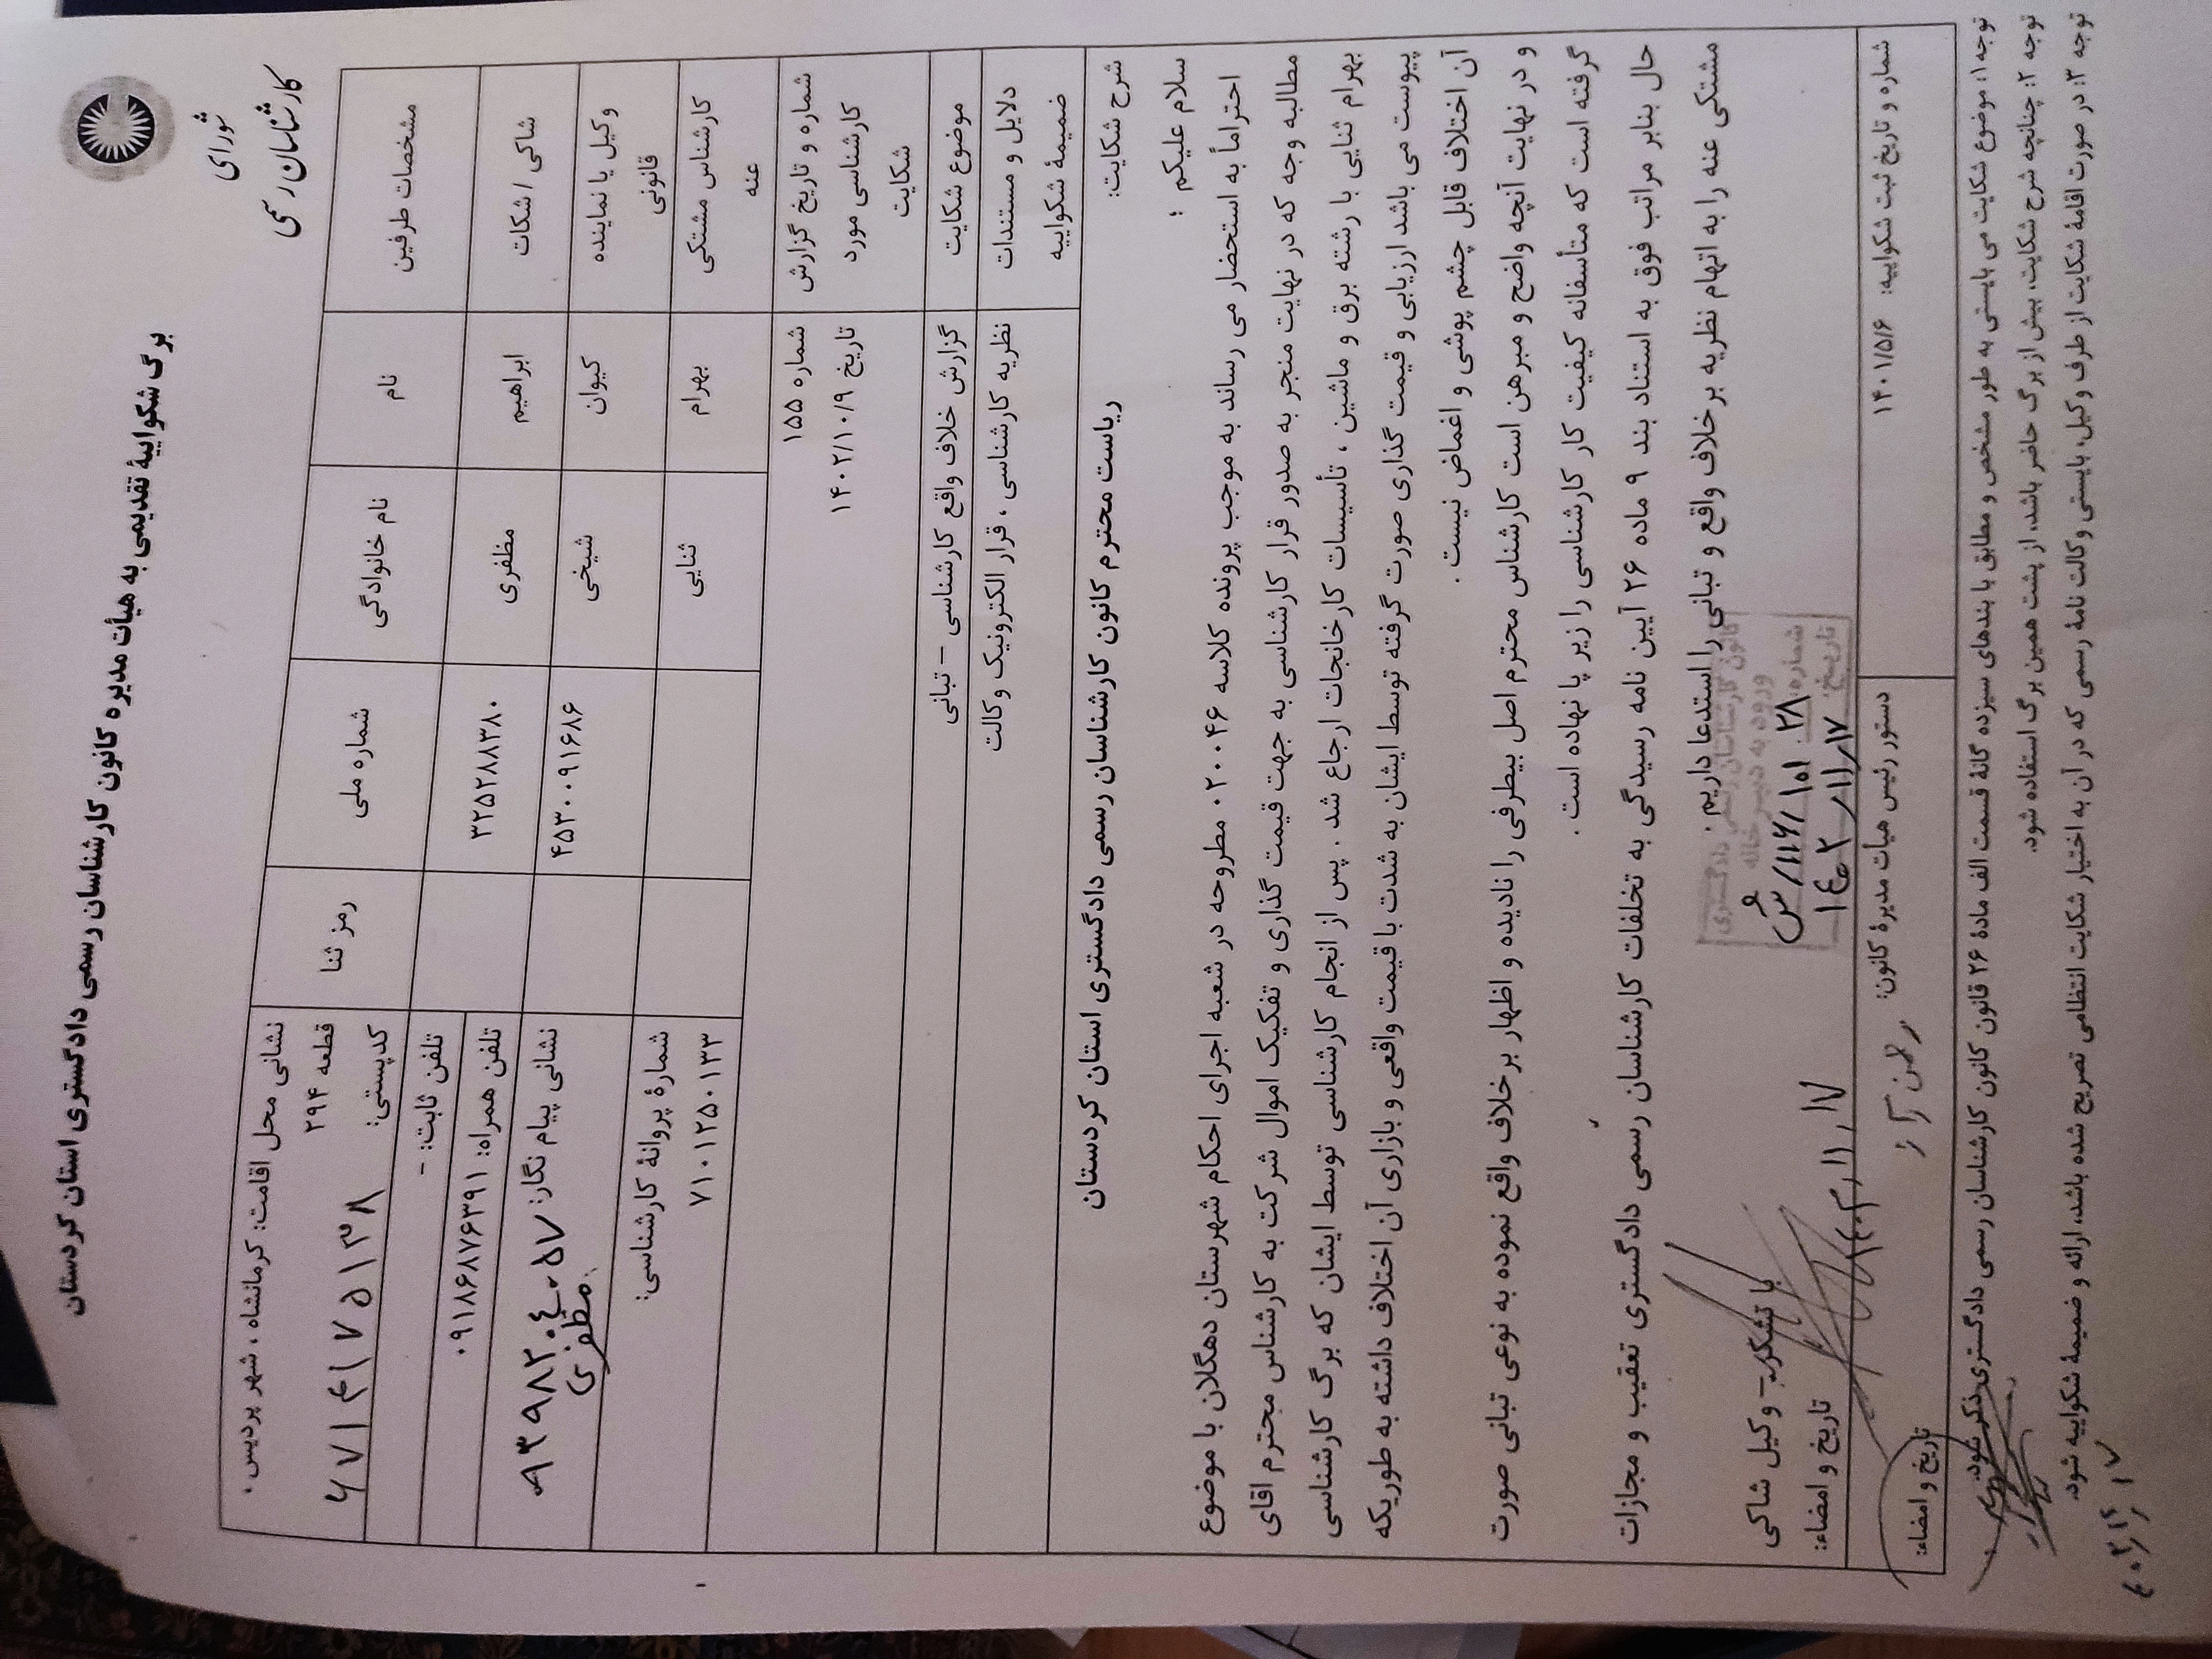 برگ شکواییهٔ تقدیمی به هیأت مدیره کانون کارشناسان رسمی دادگستری استان کردستان
شورای
کارشناسان رسمی
مشخصات طرفین
نام
نام خانوادگی
شماره ملی
رمز ثنا
نشانی محل اقامت: کرمانشاه ، شهر پردیس ،
قطعه ۲۹۴
کدپستی:
شاکی / شکات
ابراهیم
مظفری
۳۲۵۲۸۸۳۸۰
تلفن ثابت: -
تلفن همراه: ۰۹۱۸۶۸۷۶۳۹۱
وکیل یا نماینده
قانونی
کیوان
شیخی
۴۵۳۰۰۹۱۶۸۶
نشانی پیام نگار:
مظفری
کارشناس مشتکی
عنه
بهرام
ثنایی
شمارهٔ پروانهٔ کارشناسی:
۷۱۰۱۲۵۰۱۳۳
شماره و تاریخ گزارش
کارشناسی مورد
شکایت
شماره ۱۵۵
تاریخ ۱۴۰۲/۱۰/۹
موضوع شکایت
گزارش خلاف واقع کارشناسی – تبانی
دلایل و مستندات
ضمیمهٔ شکواییه
نظریه کارشناسی ، قرار الکترونیک وکالت
شرح شکایت:
ریاست محترم کانون کارشناسان رسمی دادگستری استان کردستان
سلام علیکم ؛
احتراماً به استحضار می رساند به موجب پرونده کلاسه ۰۲۰۰۴۶ مطروحه در شعبه اجرای احکام شهرستان دهگلان با موضوع
مطالبه وجه که در نهایت منجر به صدور قرار کارشناسی به جهت قیمت گذاری و تفکیک اموال شرکت به کارشناس محترم اقای
بهرام ثنایی با رشته برق و ماشین ، تأسیسات کارخانجات ارجاع شد . پس از انجام کارشناسی توسط ایشان که برگ کارشناسی
پیوست می باشد ارزیابی و قیمت گذاری صورت گرفته توسط ایشان به شدت با قیمت واقعی و بازاری آن اختلاف داشته به طوریکه
آن اختلاف قابل چشم پوشی و اغماض نیست .
و در نهایت آنچه واضح و مبرهن است کارشناس محترم اصل بیطرفی را نادیده و اظهار برخلاف واقع نموده به نوعی تبانی صورت
گرفته است که متأسفانه کیفیت کار کارشناسی را زیر پا نهاده است .
حال بنابر مراتب فوق به استناد بند ۹ ماده ۲۶ آیین نامه رسیدگی به تخلفات کارشناسان رسمی دادگستری تعقیب و مجازات
مشتکی عنه را به اتهام نظریه برخلاف واقع و تبانی را استدعا داریم .
کانون کارشناسان رسمی دادگستری
ورود به دبیرخانه
شماره: ۲۸
تاریخ:
با تشکر – وکیل شاکی
تاریخ و امضاء:
شماره و تاریخ ثبت شکواییه: ۱۴۰۱/۵/۶
دستور رئیس هیأت مدیرهٔ کانون:
تاریخ و امضاء:
توجه ۱: موضوع شکایت می بایستی به طور مشخص و مطابق با بندهای سیزده گانهٔ قسمت الف مادهٔ ۲۶ قانون کانون کارشناسان رسمی دادگستری ذکر شود.
توجه ۲: چنانچه شرح شکایت، بیش از برگ حاضر باشد، از پشت همین برگ استفاده شود.
توجه ۳: در صورت اقامهٔ شکایت از طرف وکیل، بایستی وکالت نامهٔ رسمی که در آن به اختیار شکایت انتظامی تصریح شده باشد، ارائه و ضمیمهٔ شکواییه شود.